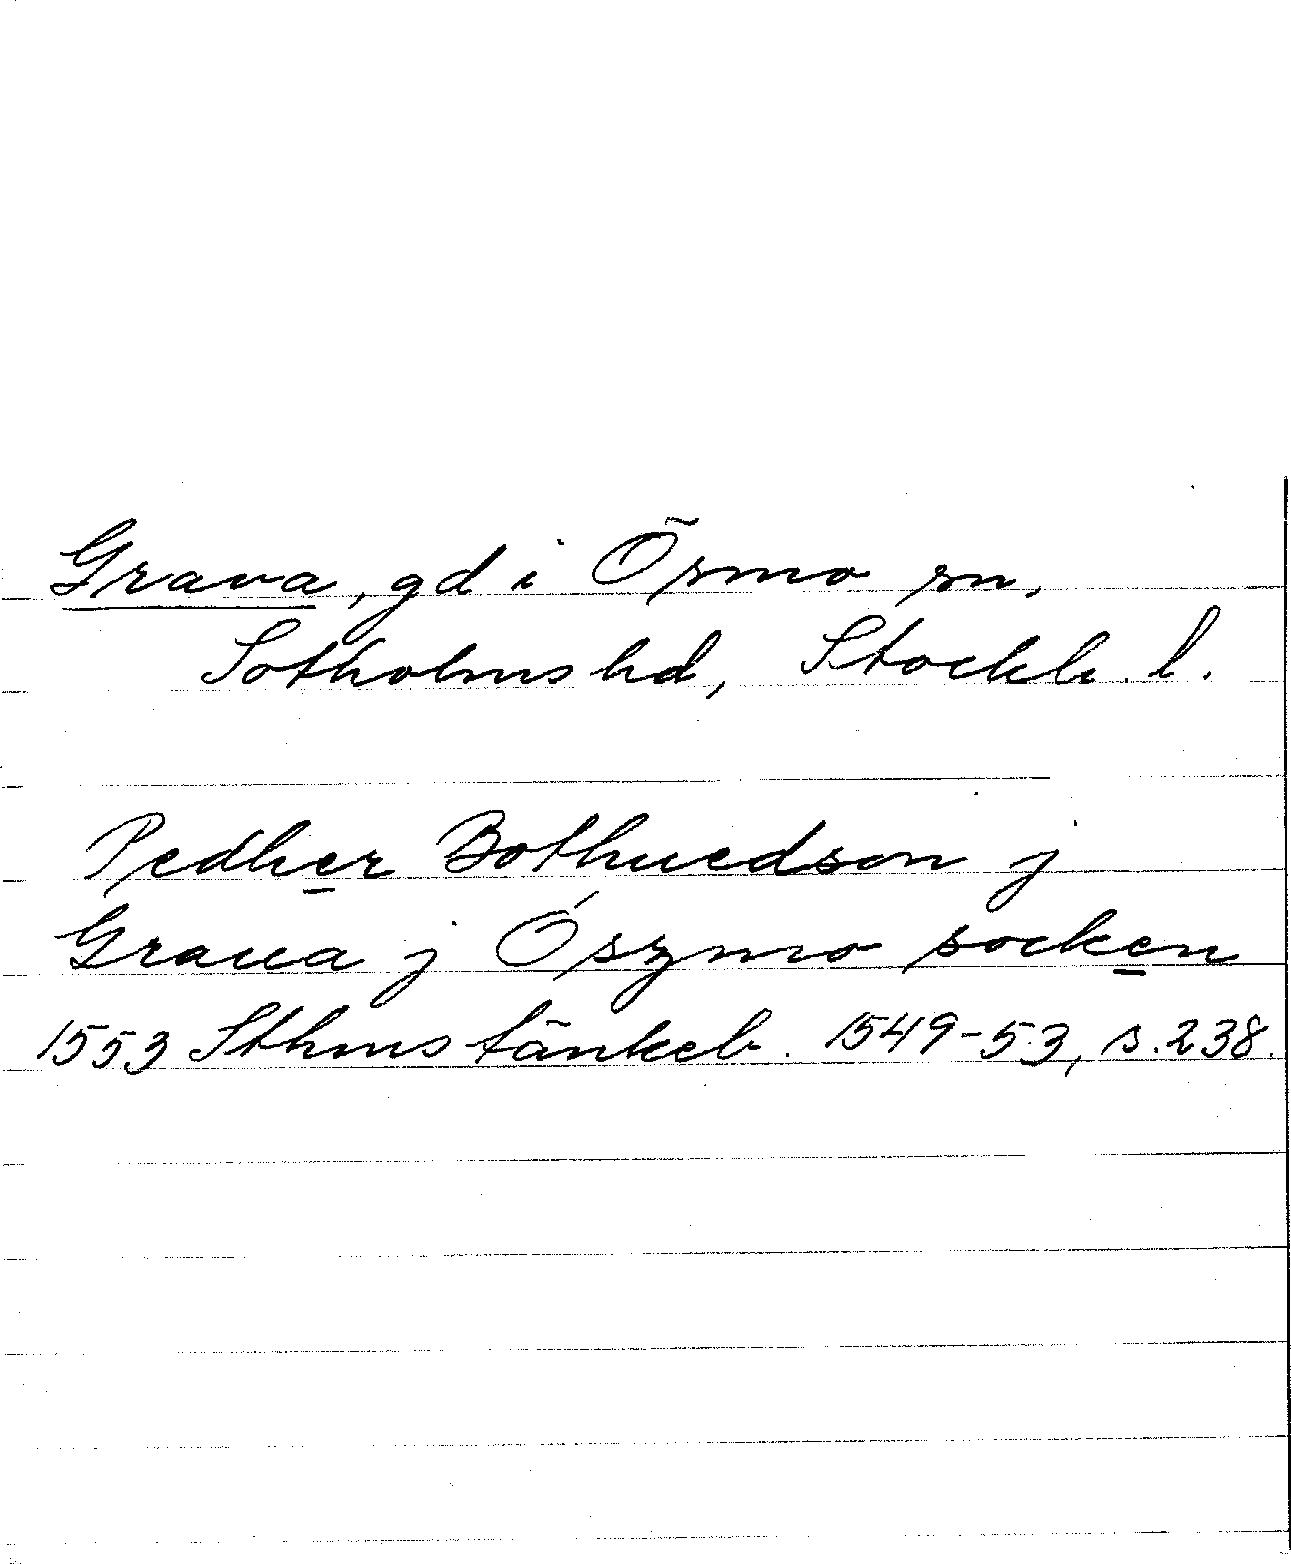 Grava, gd i Ösmo sn,
Sotholms hd, Stockh. l.
Pedher Bothuedson j
Graua j Ószmo socken
1553 Sthms tänkeb. 1549-53, s. 238.